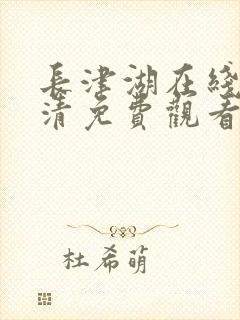 長津湖在綫
清免費觀看
杜希萌